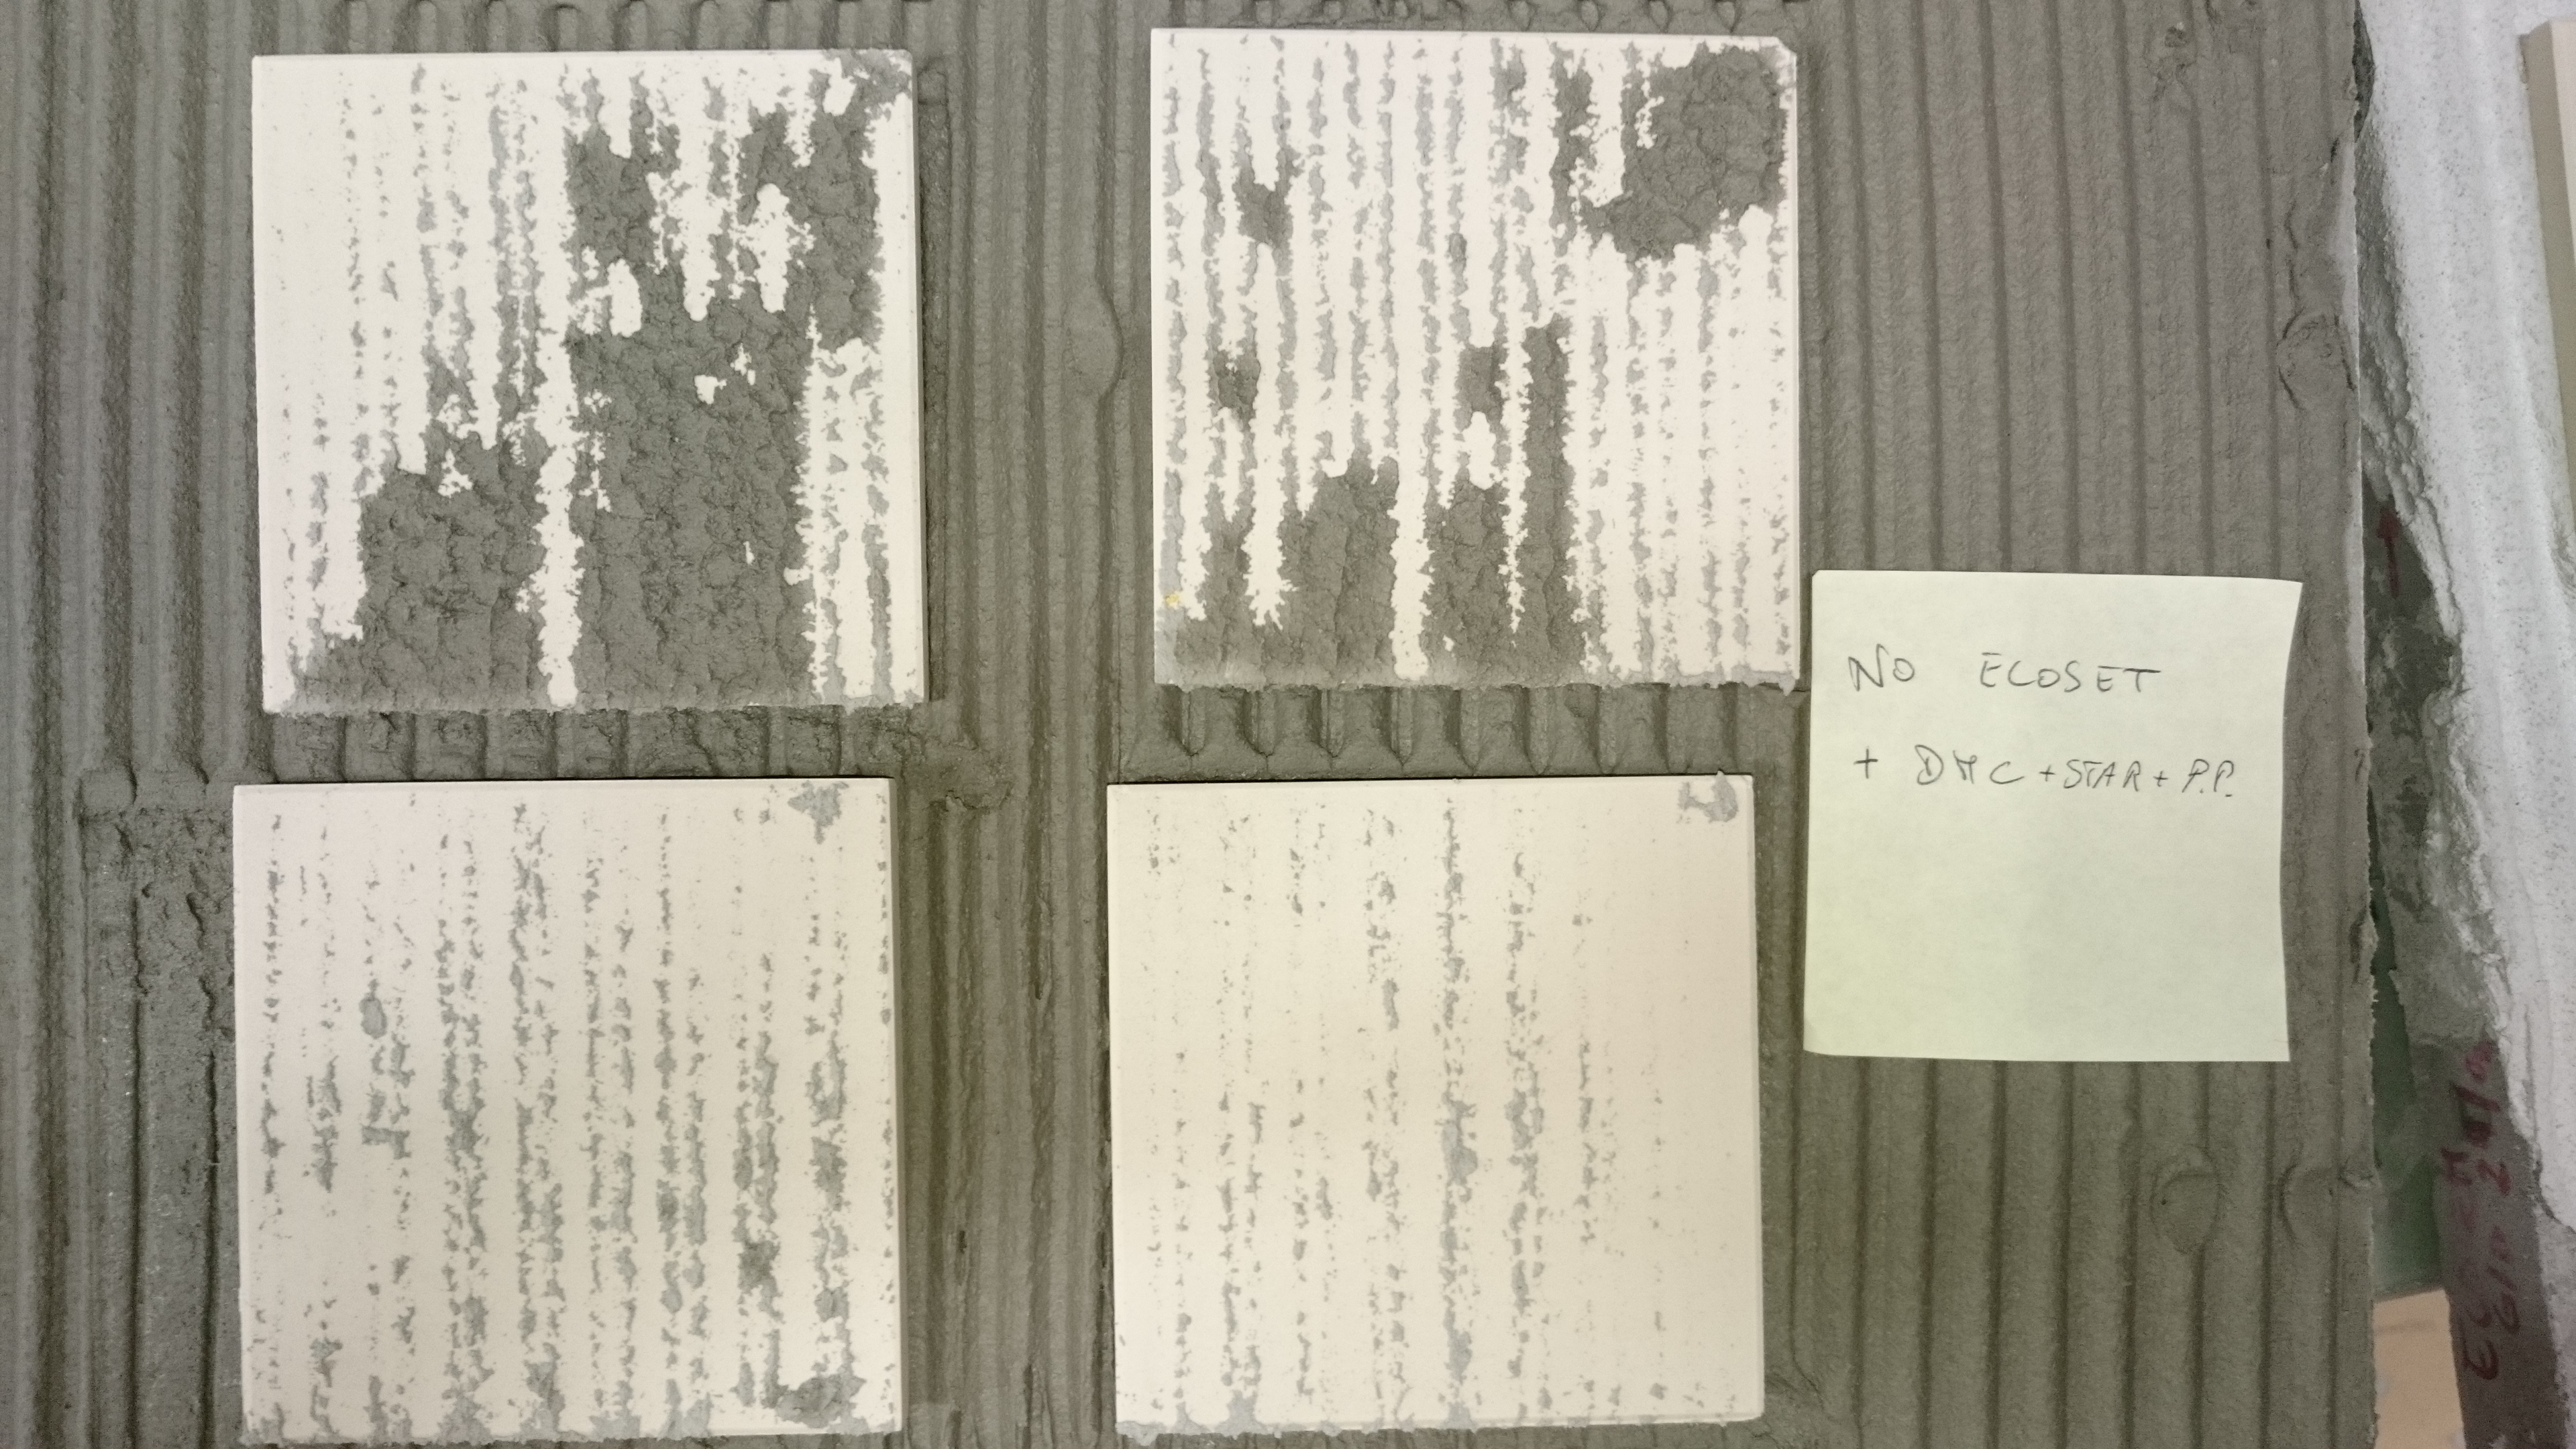 NO ECOSET
+ DMC + STAR + P.P.